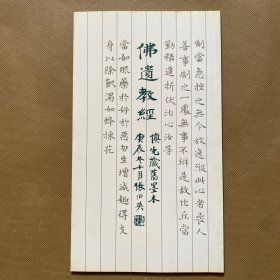 制當急挫之無令放逸縱此心者喪人
善事制之一處無事不辦是故比丘當
勤精進折伏汝心汝等
佛遺教經
慎先藏舊墨本
庚辰年十月張伯英
當如服藥於好於惡勿生增減趣得支
身以除飢渴如蜂採花